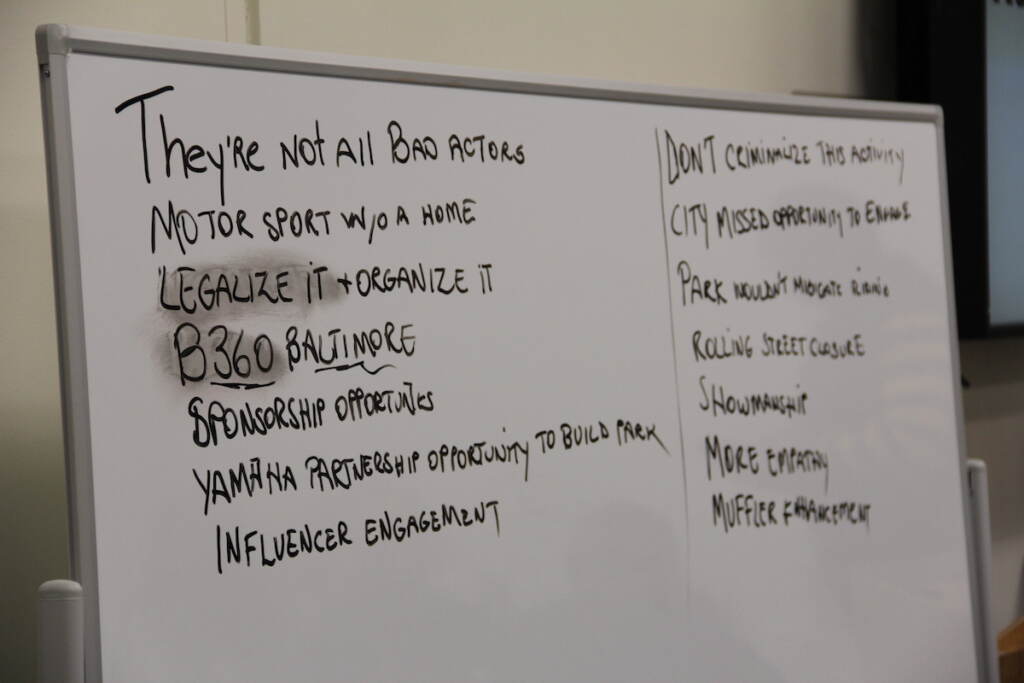 They're Not All Bad Actors
MOTOR SPORT W/O A HOME
LEGALIZE IT + ORGANIZE IT
B360 BALTIMORE
SPONSORSHIP OPPORTUNITIES
YAMAHA PARTNERSHIP OPPORTUNITY TO BUILD PARK
INFLUENCER ENGAGEMENT
DON'T CRIMINALIZE THIS ACTIVITY
CITY MISSED OPPORTUNITY TO ENGAGE
PARK WOULDN'T MITIGATE RIDING
ROLLING STREET CLOSURE
SHOWMANSHIP
MORE EMPATHY
MUFFLER ENHANCEMENT